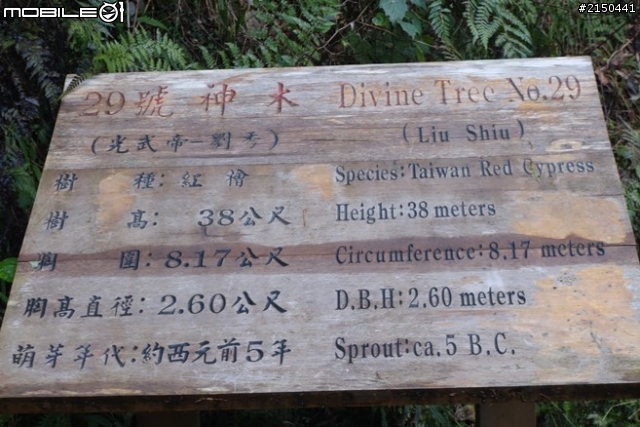 MOBILE01
#2150441
29號神木 Divine Tree No.29
(光武帝－劉秀) (Liu Shiu)
樹種：紅檜 Species:Taiwan Red Cypress
樹高：38公尺 Height:38 meters
胸圍：8.17公尺 Circumference:8.17 meters
胸高直徑：2.60公尺 D.B.H:2.60 meters
萌芽年代：約西元前5年 Sprout:ca.5 B.C.